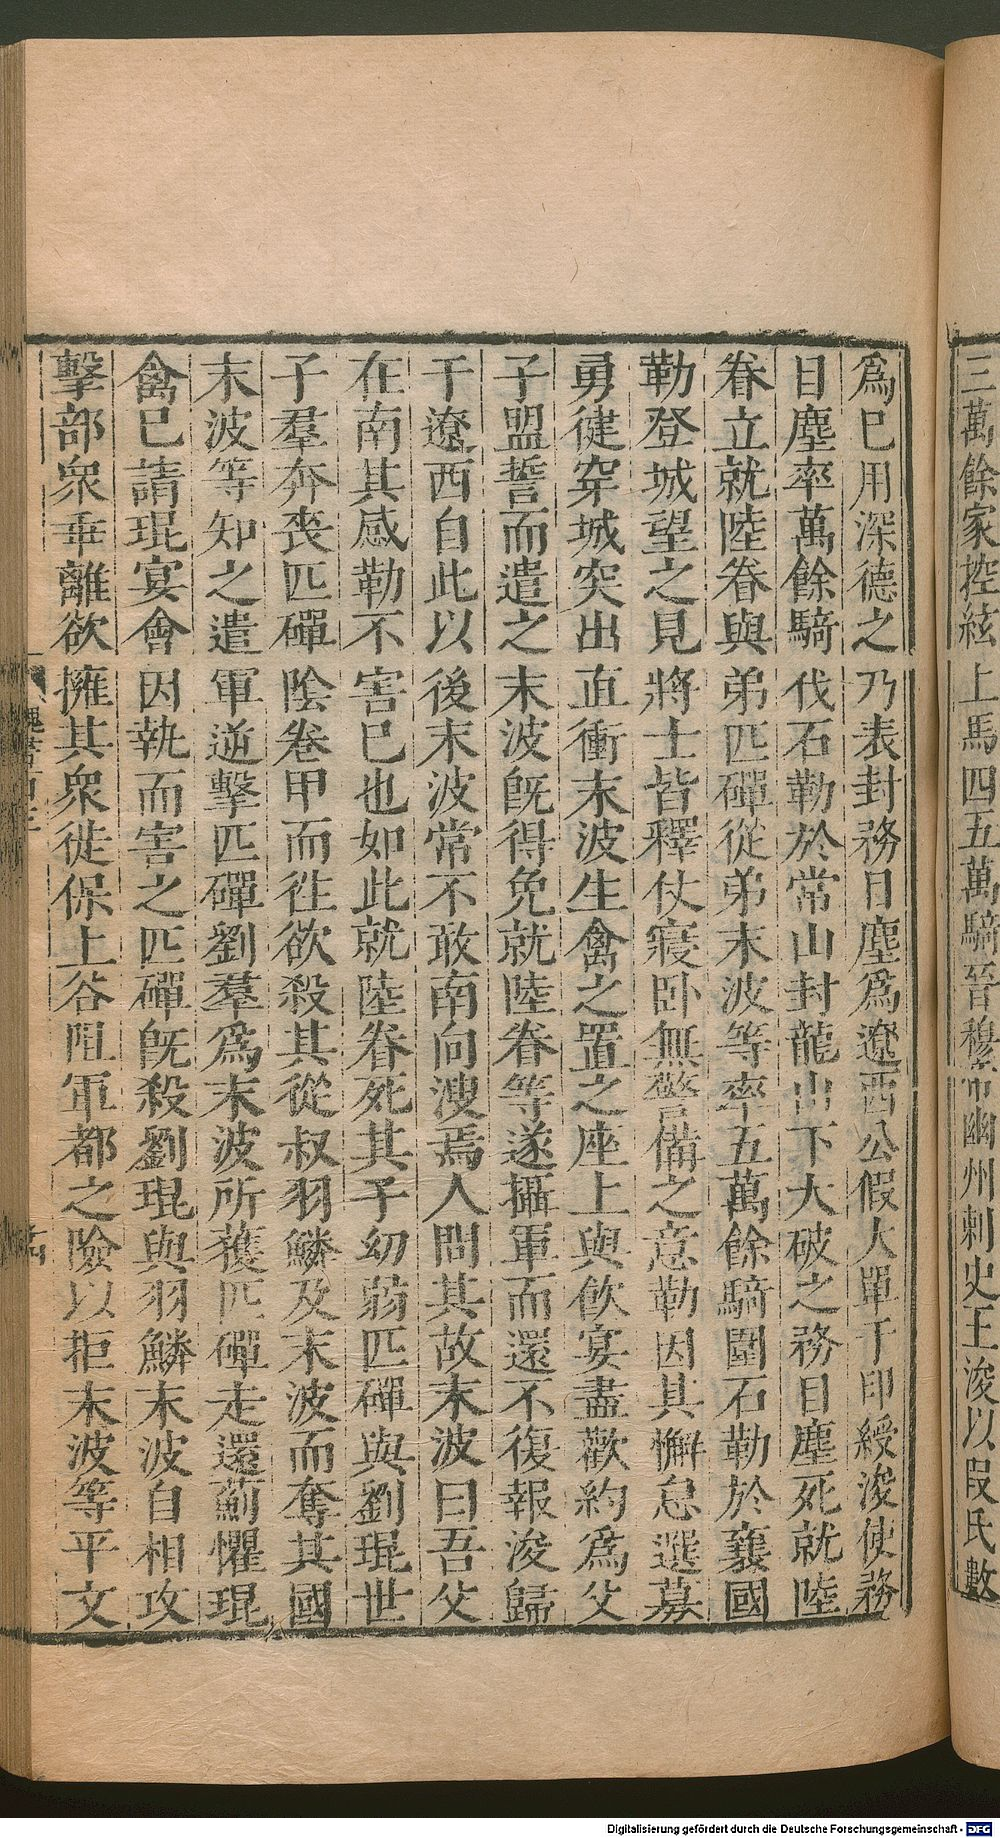 三萬餘家控絃上馬四五萬騎晉穆帝幽州刺史王浚以段氏數
爲巳用深德之乃表封務目塵爲遼西公假大單于印綬浚使務
目塵率萬餘騎伐石勒於常山封龍山下大破之務目塵死就陸
眷立就陸眷與弟匹磾從弟末波等率五萬餘騎圍石勒於襄國
勒登城望之見將士皆釋仗寢卧無警備之意勒因其懈怠選募
勇徤穿城突出直衝末波生禽之置之座上與飮宴盡歡約爲父
子盟誓而遣之末波旣得免就陸眷等遂攝軍而還不復報浚歸
于遼西自此以後末波常不敢南向溲焉人問其故末波曰吾父
在南其感勒不害巳也如此就陸眷死其子幼弱匹磾與劉琨世
子羣奔喪匹磾陰卷甲而徃欲殺其從叔羽鱗及末波而奪其國
末波等知之遣軍逆擊匹磾劉羣爲末波所獲匹磾走還薊懼琨
禽巳請琨宴會因執而害之匹磾旣殺劉琨與羽鱗末波自相攻
擊部衆乖離欲擁其衆徙保上谷阻軍都之險以拒末波等平文
Digitalisierung gefördert durch die Deutsche Forschungsgemeinschaft - DFG